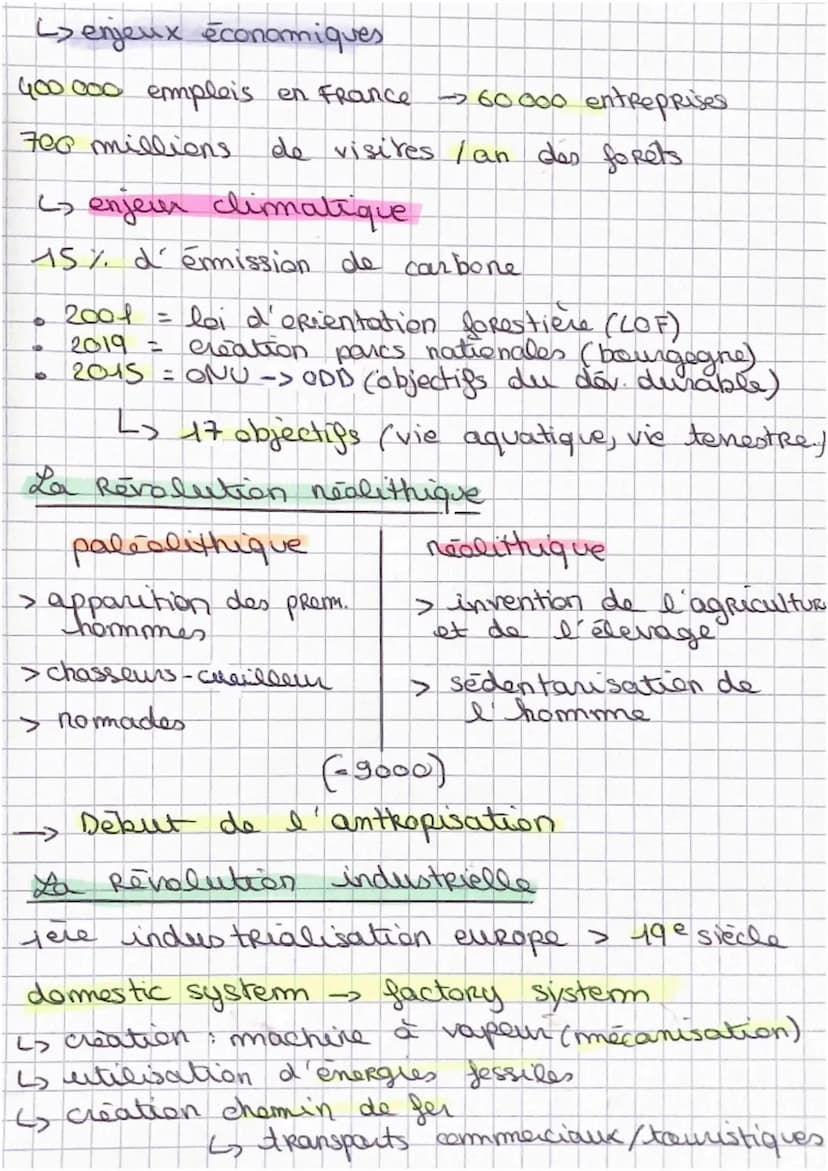 ↳ enjeux économiques
400 000 emplois en France → 60 000 entreprises
700 millions de visites / an des forêts
↳ enjeux climatique
15 % d'émission de carbone
• 2001 = loi d'orientation forestière (LOF)
• 2019 = création parcs nationales (bourgogne)
• 2015 = ONU -> ODD (objectifs du dév. durable)
↳ 17 objectifs (vie aquatique, vie terrestre.)
La Révolution néolithique
paléolithique
> apparition des prem.
hommes
> chasseurs-cueilleur
> nomades
néolithique
> invention de l'agricultur
et de l'élevage
> sédentarisation de
l'homme
(-9000)
→ Début de l'anthropisation
La Révolution industrielle
1ère industrialisation europe > 19e siècle
domestic system → factory system
↳ création : machine à vapeur (mécanisation)
↳ utilisation d'énergies fossiles
↳ création chemin de fer
↳ transports commerciaux/touristiques